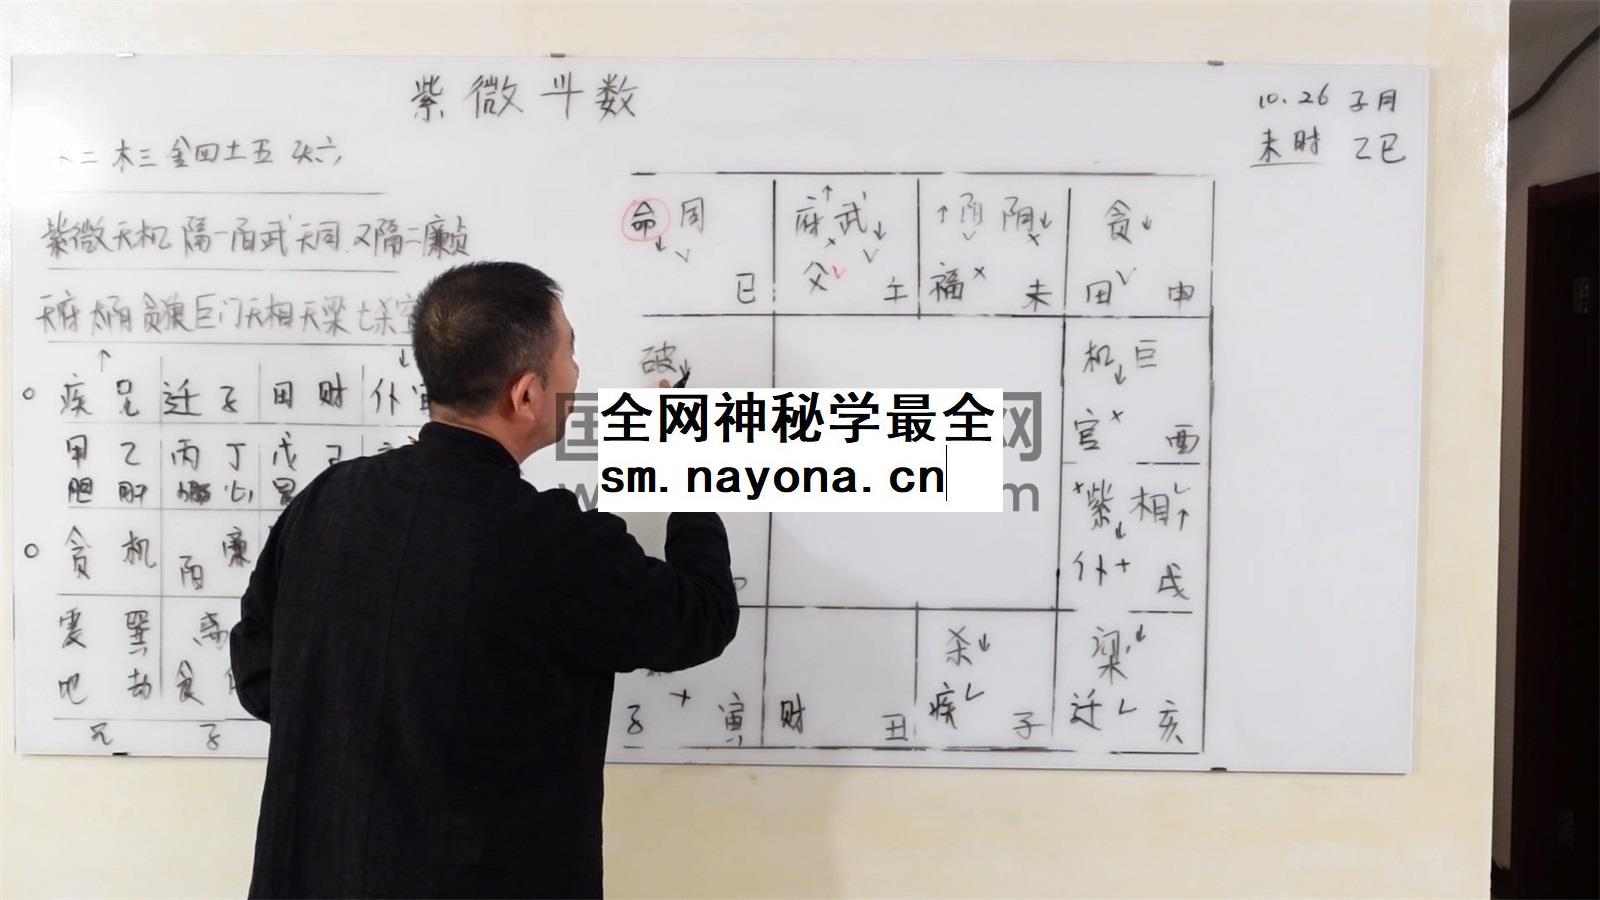 紫微斗数
10.26 子月
未时 乙巳
二 木三 金四土五 火六
紫微天机 隔一阳武天同 又隔二廉贞
天府太阴贪狼巨门天相天梁七杀
↑ ↓
○ 疾 兄 迁 子 田 财 仆
甲 乙 丙 丁 戊 己
胆 肝 小肠 心 胃
○ 贪 机 阳 廉
震 巽
地 劫 食
兄 子
命 同
↓ √
巳
↑
府 武 ↓
× √
父√ 午
↑阳 阴↓
√ ×
福× 未
贪↓
田√ 申
破↓
机 巨
↓
官× 酉
×紫 相√
↓ ↑
仆+ 戌
子 + 寅
财 丑
杀↓
疾√ 子
梁↓
迁√ 亥
全网神秘学最全
sm.nayona.cn
国 网
w m